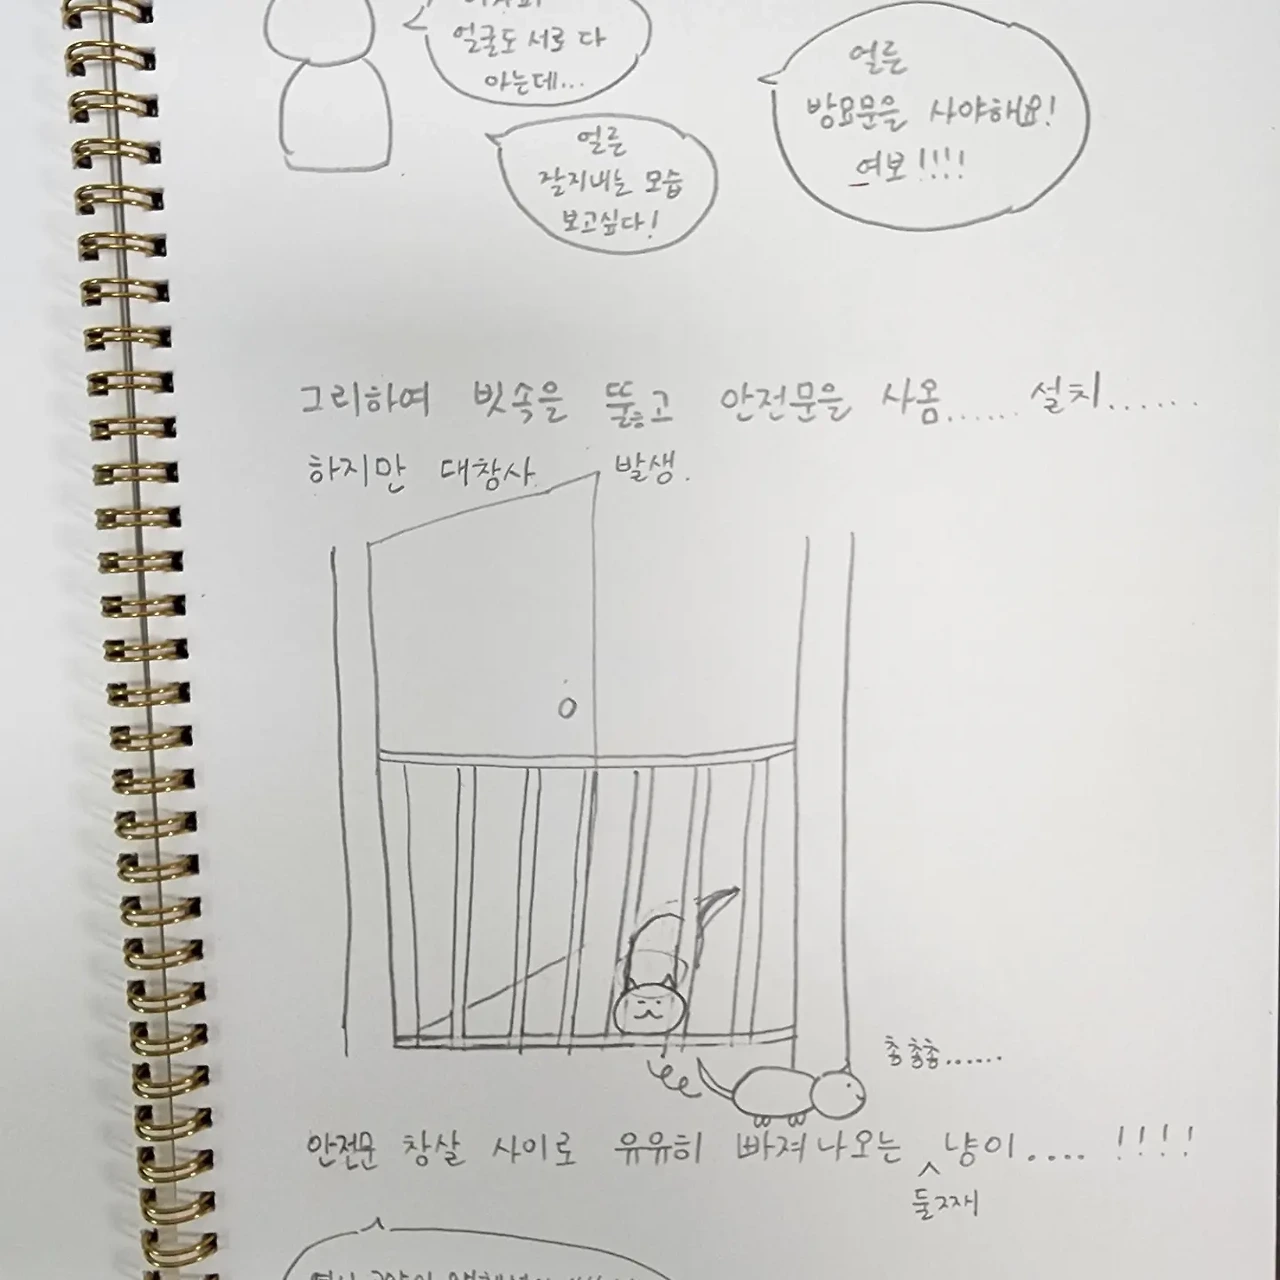 얼굴도 서로 다
아는데...
얼른
잘지내는 모습
보고싶다!
얼른
방묘문을 사야해요!
여보!!!!
그리하여 빗속을 뚫고 안전문을 사옴...... 설치.......
하지만 대참사 발생.
총총총......
안전문 창살 사이로 유유히 빠져나오는 둘째 냥이.... !!!!